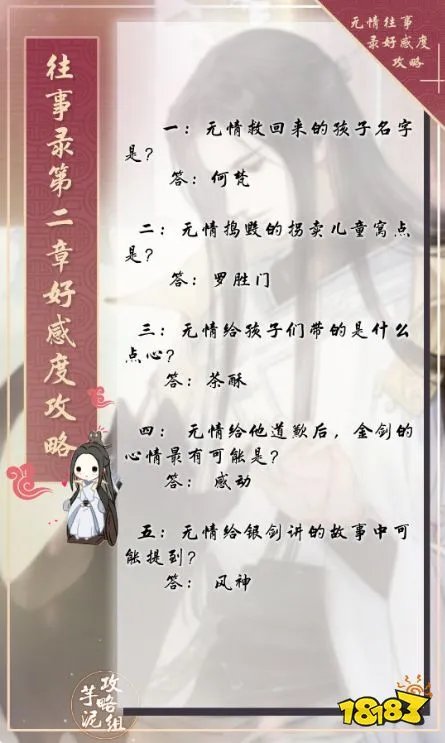 无情往事
录好感度
攻略
往事录第二章好感度攻略
一：无情救回来的孩子名字
是？
答：何梵
二：无情捣毁的拐卖儿童窝点
是？
答：罗胜门
三：无情给孩子们带的是什么
点心？
答：茶酥
四：无情给他道歉后，金剑的
心情最有可能是？
答：感动
五：无情给银剑讲的故事中可
能提到？
答：风神
芋泥
攻略组
18183